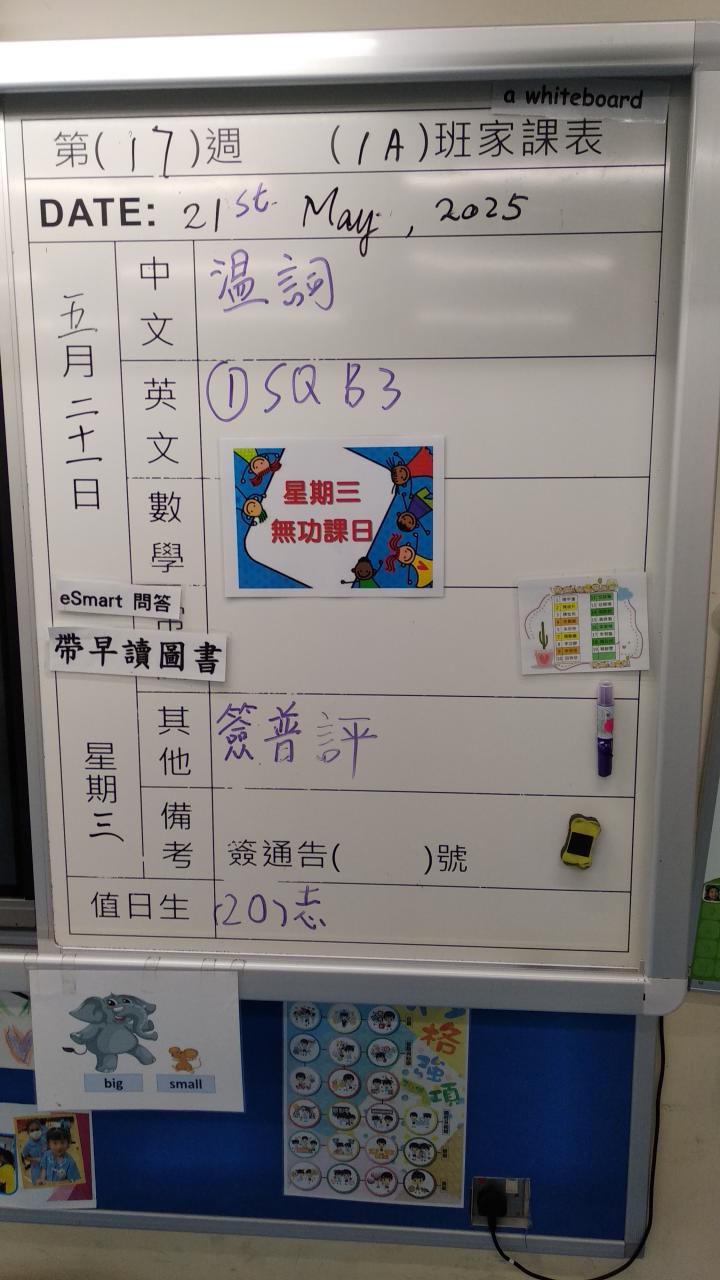 a whiteboard
第(17)週 (1A)班家課表
DATE: 21st May, 2025
五月二十一日
中文
溫詞
英文
① SQ B3
星期三
無功課日
數學
eSmart 問答
常
帶早讀圖書
其他
簽普評
星期三
備考
簽通告( )號
值日生
(20)志
big
small
格
強
項